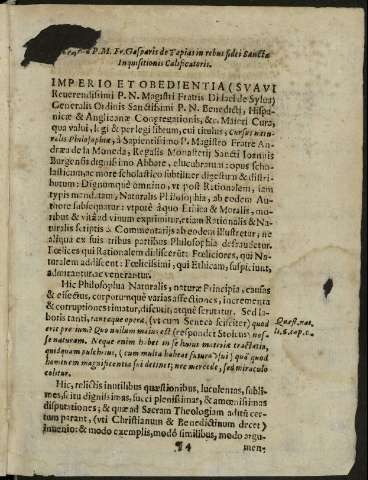 P. M. Fr. Gasparis de Tapias in rebus fidei Sanctæ
Inquisitionis Calificatoris.
IMPERIO ET OBEDIENTIA (SVAVI
Reuerendissimi P. N. Magistri Fratris Didaci de Sylua)
Generalis Ordinis Sanctissimi P. N. Benedicti, Hispa-
nicæ & Anglicanæ Congregationis, &c. Maiori Cura,
qua valui, legi & perlegi librum, cui titulus, Cursus natu-
ralis Philosophiæ, à Sapientissimo P. Magistro Fratre An-
dræa de la Moneda, Regalis Monasterij Sancti Ioannis
Burgensis dignissimo Abbate, elucubratum: opus scho-
lasticum, ac more scholastico subtiliter digestum & distri-
butum: Dignumque omnino, vt post Rationalem, iam
typis mandatam, Naturalis Philosophia, ab eodem Au-
thore subsequatur: vtpotè à quo Ethica & Moralis, mo-
ribus & vitâ ad viuum exprimitur, etiam Rationalis & Na-
turalis scriptis & Commentarijs ab eodem illustretur; ne
aliqua ex suis tribus partibus Philosophia defraudetur.
Fœlices qui Rationalem didiscerūt: Fœliciores, qui Na-
turalem addiscent: Fœlicissimi, qui Ethicam, suspiciunt,
admirantur, ac venerantur.
Hic Philosophia Naturalis, naturæ Principia, causas
& effectus, corporumquè varias affectiones, incrementa
& corruptiones rimatur, discutit, atquè scrutatur. Sed la-
boris tanti, tantæque operæ, (vt cum Seneca sciscitor) quod
erit pretium? Quo nullum maius est (respondet Stoicus) nos-
se naturam. Neque enim habet in se huius materiæ tractatio,
quidquam pulchrius, (cum multa habeat futura vsui) quā quod
hominem magnificentia sui detinet; nec mercede, sed miraculo
colitur.
Quæst. nat.
li. 6. cap. 4.
Hic, relictis inutilibus quæstionibus, luculentas, subli-
mes, scitu dignissimas, succi plenissimas, & amœnissimas
disputationes; & quæ ad Sacram Theologiam aditū cer-
tum parant, (vti Christianum & Benedictinum decet)
inuenio: & modo exemplis, modó similibus, modo argu-
¶4 men-